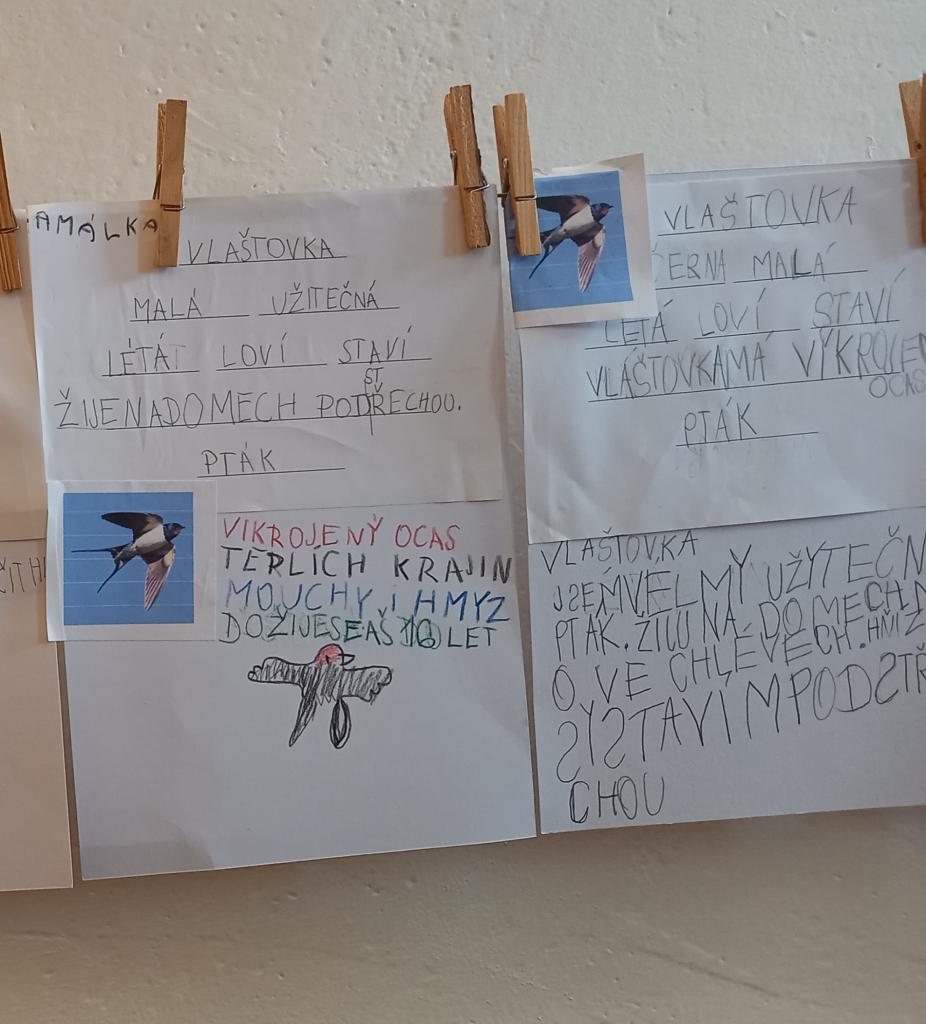 AMÁLKA
VLAŠTOVKA
MALÁ UŽITEČNÁ
LÉTÁT LOVÍ STAVÍ
ŽIJENADOMECH PODSTŘECHOU.
PTÁK
VIKROJENÝ OCAS
TĚRLÍCH KRAJIN
MOUCHY i HMYZ
DOŽIJESEAŠ 10 LET
VLAŠTOVKA
ČERNA MALÁ
LÉTÁ LOVÍ STAVÍ
VLÁŠTOVKAMÁ VÝKROJEN
OCAS
PTÁK
VLAŠTOVKA
JSEMVELMY UŽYTEČN
PTÁK. ŽIJU NA DOMECH.N
O VE CHLÉVECH. HŇÍZ
SYSTAVIMPODSTŘ
CHOU